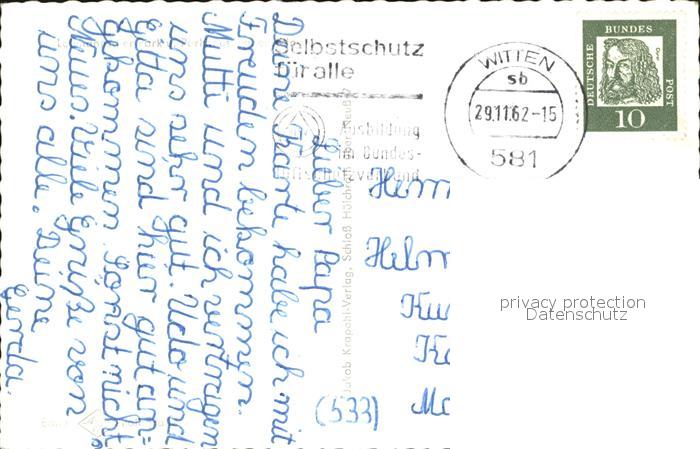 Lieber Papa
Deine Karte habe ich mit
Freuden bekommen.
Mutti und ich vertragen
uns sehr gut. Udo und
Etta sind hier gut an=
gekommen. Sonst nichts
Neues. Viele Grüße von
uns alle. Deine
Gerda.
Selbstschutz
für alle
Ausbildung
im Bundes-
luftschutzverband
WITTEN
sb
29.11.62-15
581
DEUTSCHE BUNDES POST
Dürer
10
Jakob Krapohl-Verlag, Schloß
Herrn
Helm
(533)
privacy protection
Datenschutz